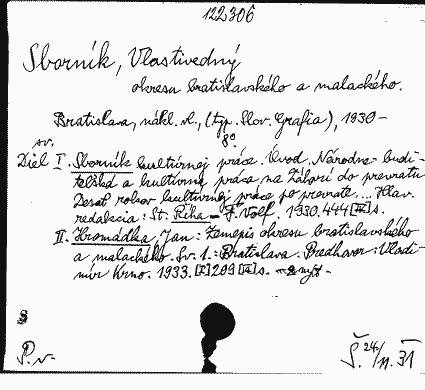 122306
Sborník, Vlastivedný
okresu bratislavského a malackého.
Bratislava, nákl. vl., (typ. Slov. Grafia), 1930-
8°
sv.
Diel I. Sborník kultúrnej práce. Úvod. Národno-budi-
teľská a kultúrna práca na Záhorí do prevratu
Desať rokov kultúrnej práce po prevrate... Hlav.
redakcia: St. Říha - F. Volf. 1930. 444 s.
II. Hromádka, Jan: Zemepis okresu bratislavského
a malackého. Sv. 1.: Bratislava. Predhovor: Vladi-
mír Krno. 1933. 209 s.
P.v.
Š. 24/11. 31